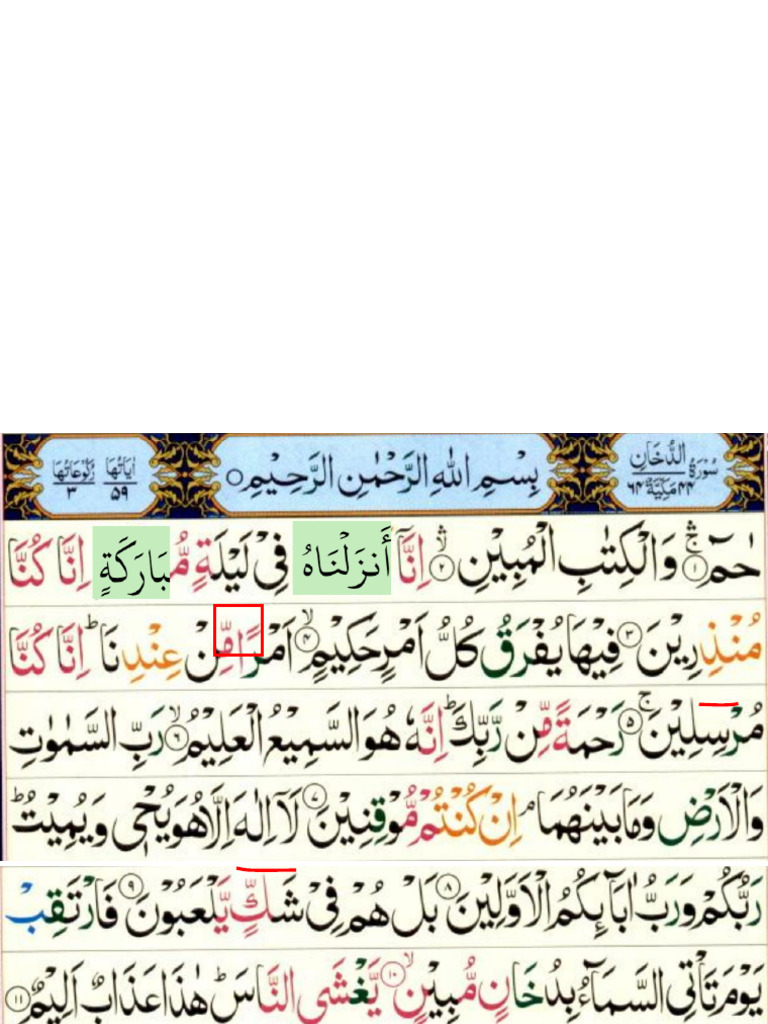 سُوْرَةُ الدُّخَانِ ٤٤ مَكِّيَّةٌ ٦٤ بِسْمِ اللهِ الرَّحْمٰنِ الرَّحِيْمِ اٰيَاتُهَا ٥٩ رُكُوْعَاتُهَا ٣
حٰمٓ ۚۛ ١ وَالْكِتٰبِ الْمُبِيْنِ ۙۛ ٢ اِنَّاۤ أَنزَلْنَاهُ فِيْ لَيْلَةٍ مُّبَارَكَةٍ اِنَّا كُنَّا
مُنْذِرِيْنَ ٣ فِيْهَا يُفْرَقُ كُلُّ اَمْرٍ حَكِيْمٍ ۙ ٤ اَمْرًا مِّنْ عِنْدِنَا ؕ اِنَّا كُنَّا
مُرْسِلِيْنَ ۚ ٥ رَحْمَةً مِّنْ رَّبِّكَ ؕ اِنَّهٗ هُوَ السَّمِيْعُ الْعَلِيْمُ ۙ ٦ رَبِّ السَّمٰوٰتِ
وَالْاَرْضِ وَمَا بَيْنَهُمَا ۘ اِنْ كُنْتُمْ مُّوْقِنِيْنَ ٧ لَاۤ اِلٰهَ اِلَّا هُوَ يُحْيٖ وَيُمِيْتُ ؕ
رَبُّكُمْ وَرَبُّ اٰبَآئِكُمُ الْاَوَّلِيْنَ ٨ بَلْ هُمْ فِيْ شَكٍّ يَّلْعَبُوْنَ ٩ فَارْتَقِبْ
يَوْمَ تَاْتِي السَّمَآءُ بِدُخَانٍ مُّبِيْنٍ ۙ ١٠ يَّغْشَى النَّاسَ ؕ هٰذَا عَذَابٌ اَلِيْمٌ ١١